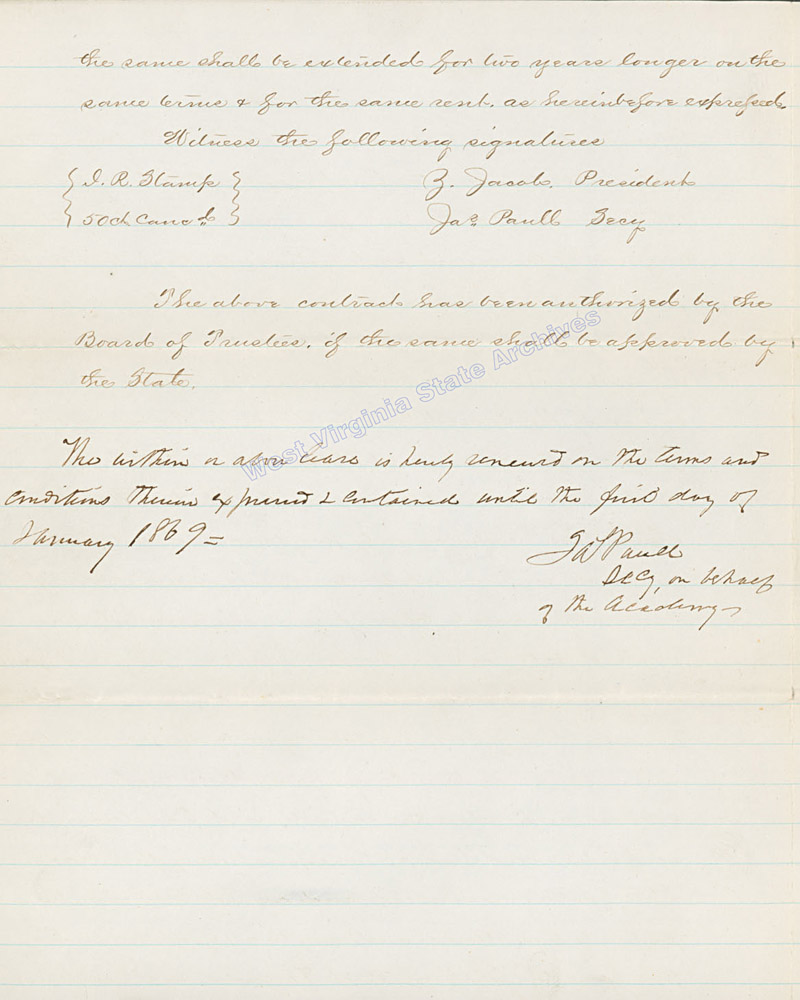 the same shall be extended for two years longer on the
same terms & for the same rent, as hereinbefore expressed.
Witness the following signatures
I. R. Stamp
Z. Jacob, President
50ct Canc.d
Jas Paull Secy
The above contract has been authorized by the
Board of Trustees, if the same shall be approved by
the State.
West Virginia State Archives
The within or above lease is hereby renewed on the terms and
conditions therein expressed & contained until the first day of
January 1869 =
Jas Paull
Secy, on behalf
of the Academy